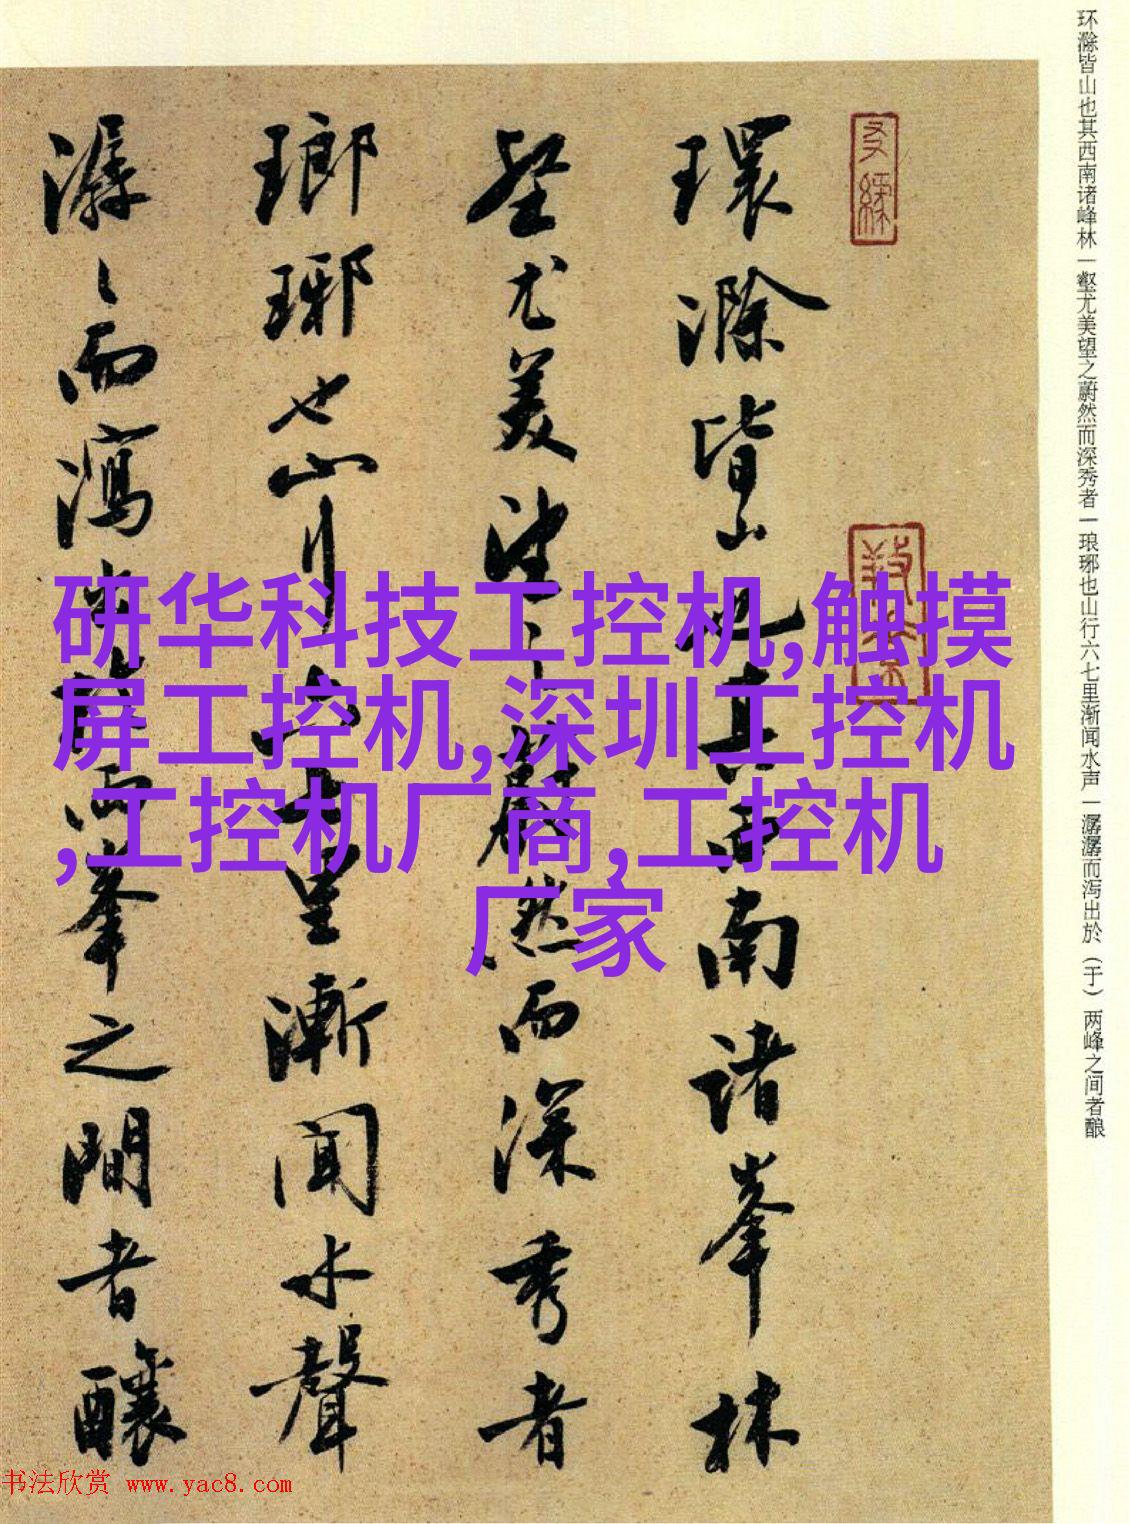 环滁皆山也其西南诸峰林一壑尤美望之蔚然而深秀者一琅琊也山行六七里渐闻水声一潺潺而泻出於（于）两峰之间者酿
環滁皆山也其西南諸峯林
壑尤美望之蔚然而深秀者
瑯琊也山行六七里漸聞水聲
潺〻而瀉出於兩峯之間者釀
研华科技工控机,触摸
屏工控机,深圳工控机
,工控机厂商,工控机
厂家
书法欣赏 www.yac8.com